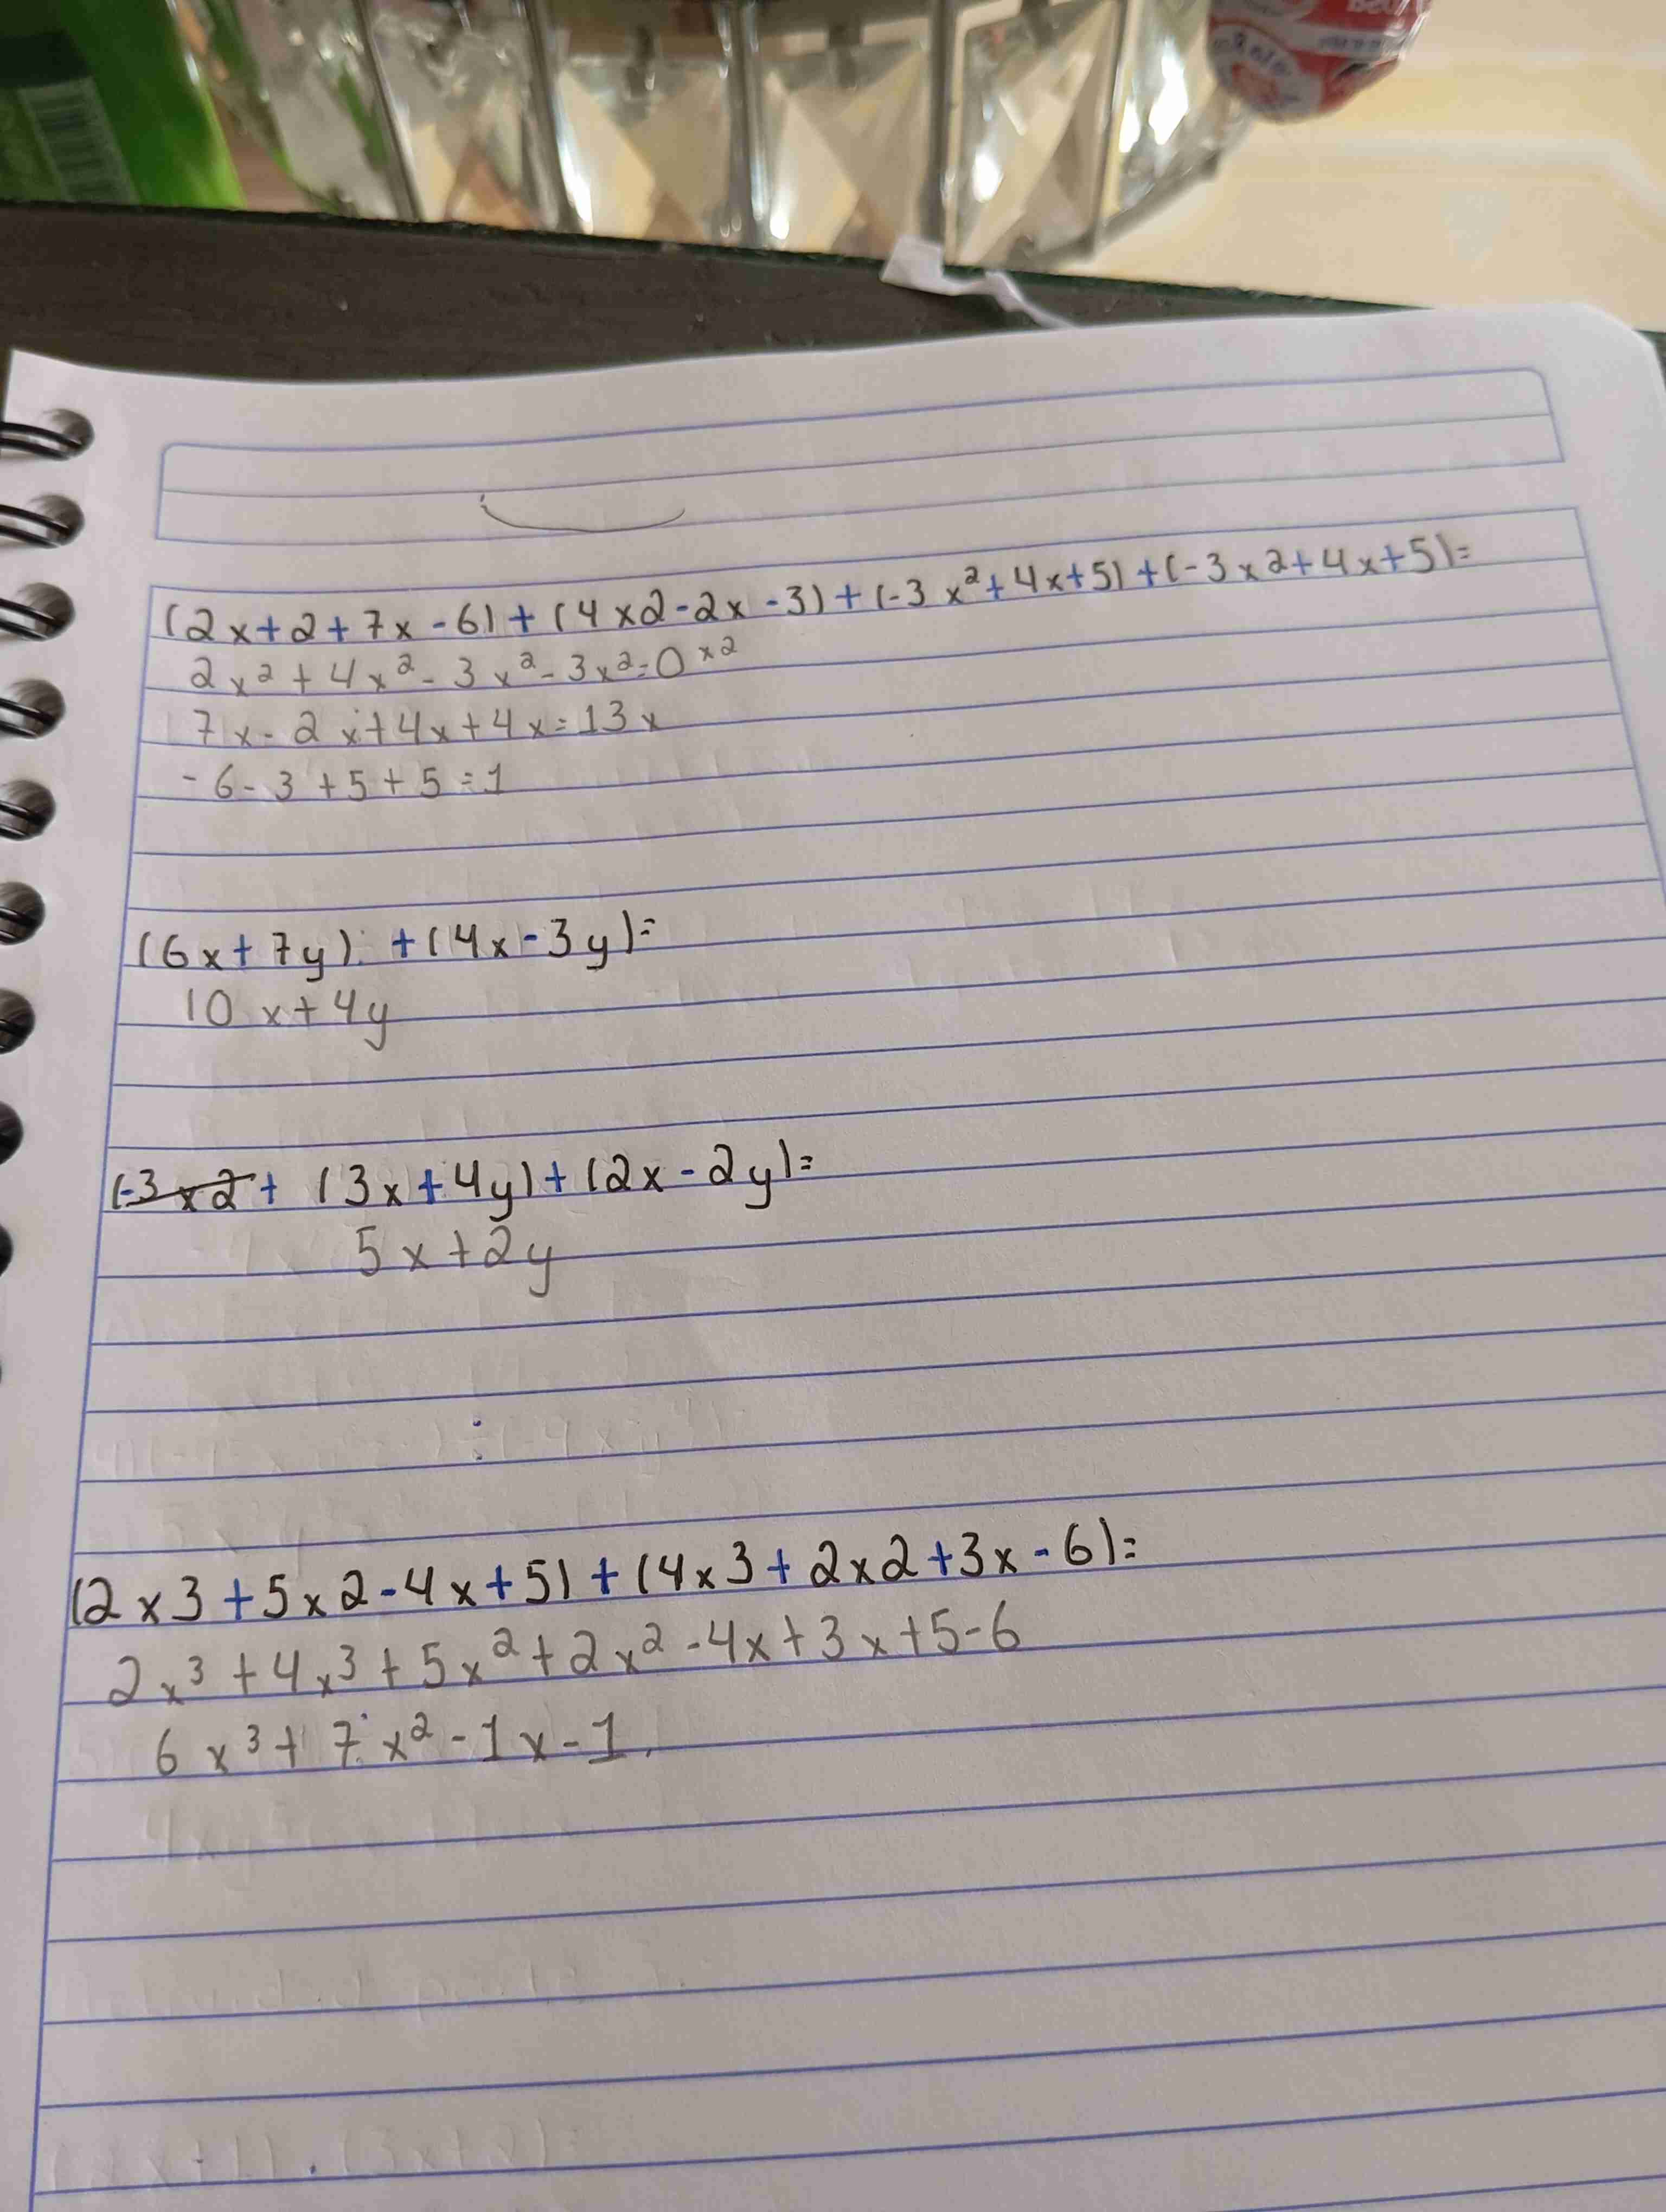 (2x+2+7x-6)+(4x2-2x-3)+(-3x²+4x+5)+(-3x2+4x+5)=
2x²+4x²-3x²-3x²=0x2
7x-2x+4x+4x=13x
-6-3+5+5=1
(6x+7y)+(4x-3y)=
10x+4y
(-3x2+ (3x+4y)+(2x-2y)=
5x+2y
(2x3+5x2-4x+5)+(4x3+2x2+3x-6)=
2x³+4x³+5x²+2x²-4x+3x+5-6
6x³+7x²-1x-1.